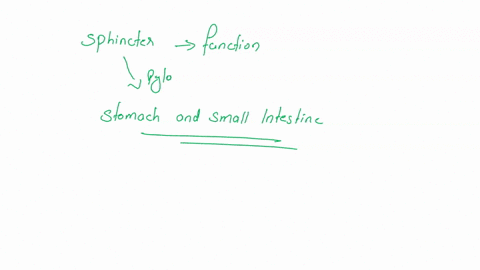 Sphincter → function
Pylo
Stomach and Small Intestine